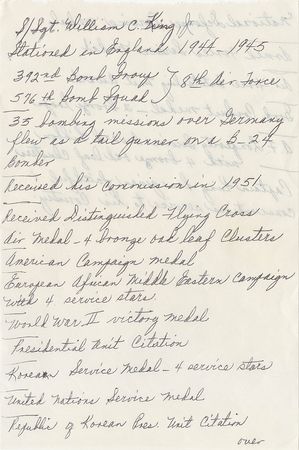 S/Sgt. William C. King Jr
Stationed in England 1944-1945
392nd Bomb Group 8th Air Force
576th Bomb Squad
35 bombing missions over Germany
flew as a tail gunner on a B-24
bomber
Received his commission in 1951
Received Distinguished Flying Cross
Air Medal - 4 bronze oak leaf Clusters
American Campaign medal
European African Middle Eastern Campaign
with 4 service stars.
World War II victory medal
Presidential Unit Citation
Korean Service Medal - 4 service stars
United Nations Service medal
Republic of Korean Pres. Unit Citation
over